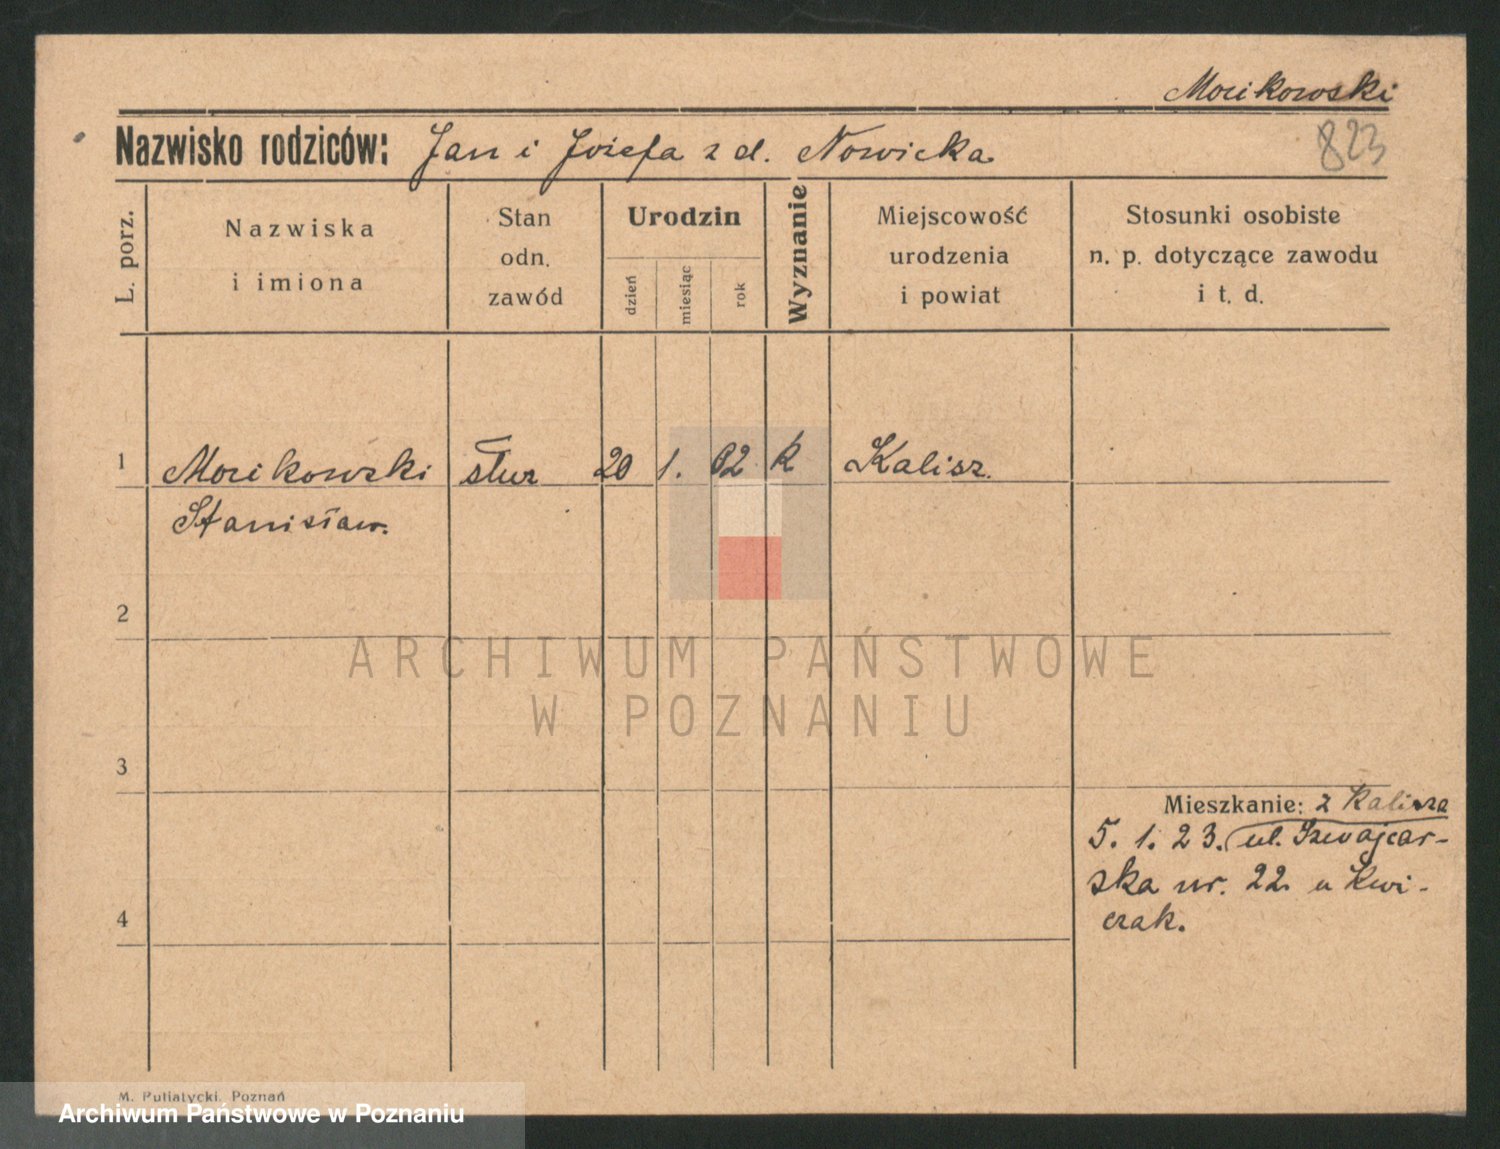 Morikowski
Nazwisko rodziców: Jan i Józefa z d. Nowicka
823
L. porz.
Nazwiska
i imiona
Stan
odn.
zawód
Urodzin
dzień
miesiąc
rok
Wyznanie
Miejscowość
urodzenia
i powiat
Stosunki osobiste
n. p. dotyczące zawodu
i t. d.
1 Morikowski 20 1. 02 k Kalisz.
Stanisław.
2
ARCHIWUM PAŃSTWOWE
W POZNANIU
3
Mieszkanie: z Kalisza
5. 1. 23. ul. Szwajcar-
ska nr. 22 u Kwi-
czak.
4
M. Putiatycki, Poznań
Archiwum Państwowe w Poznaniu